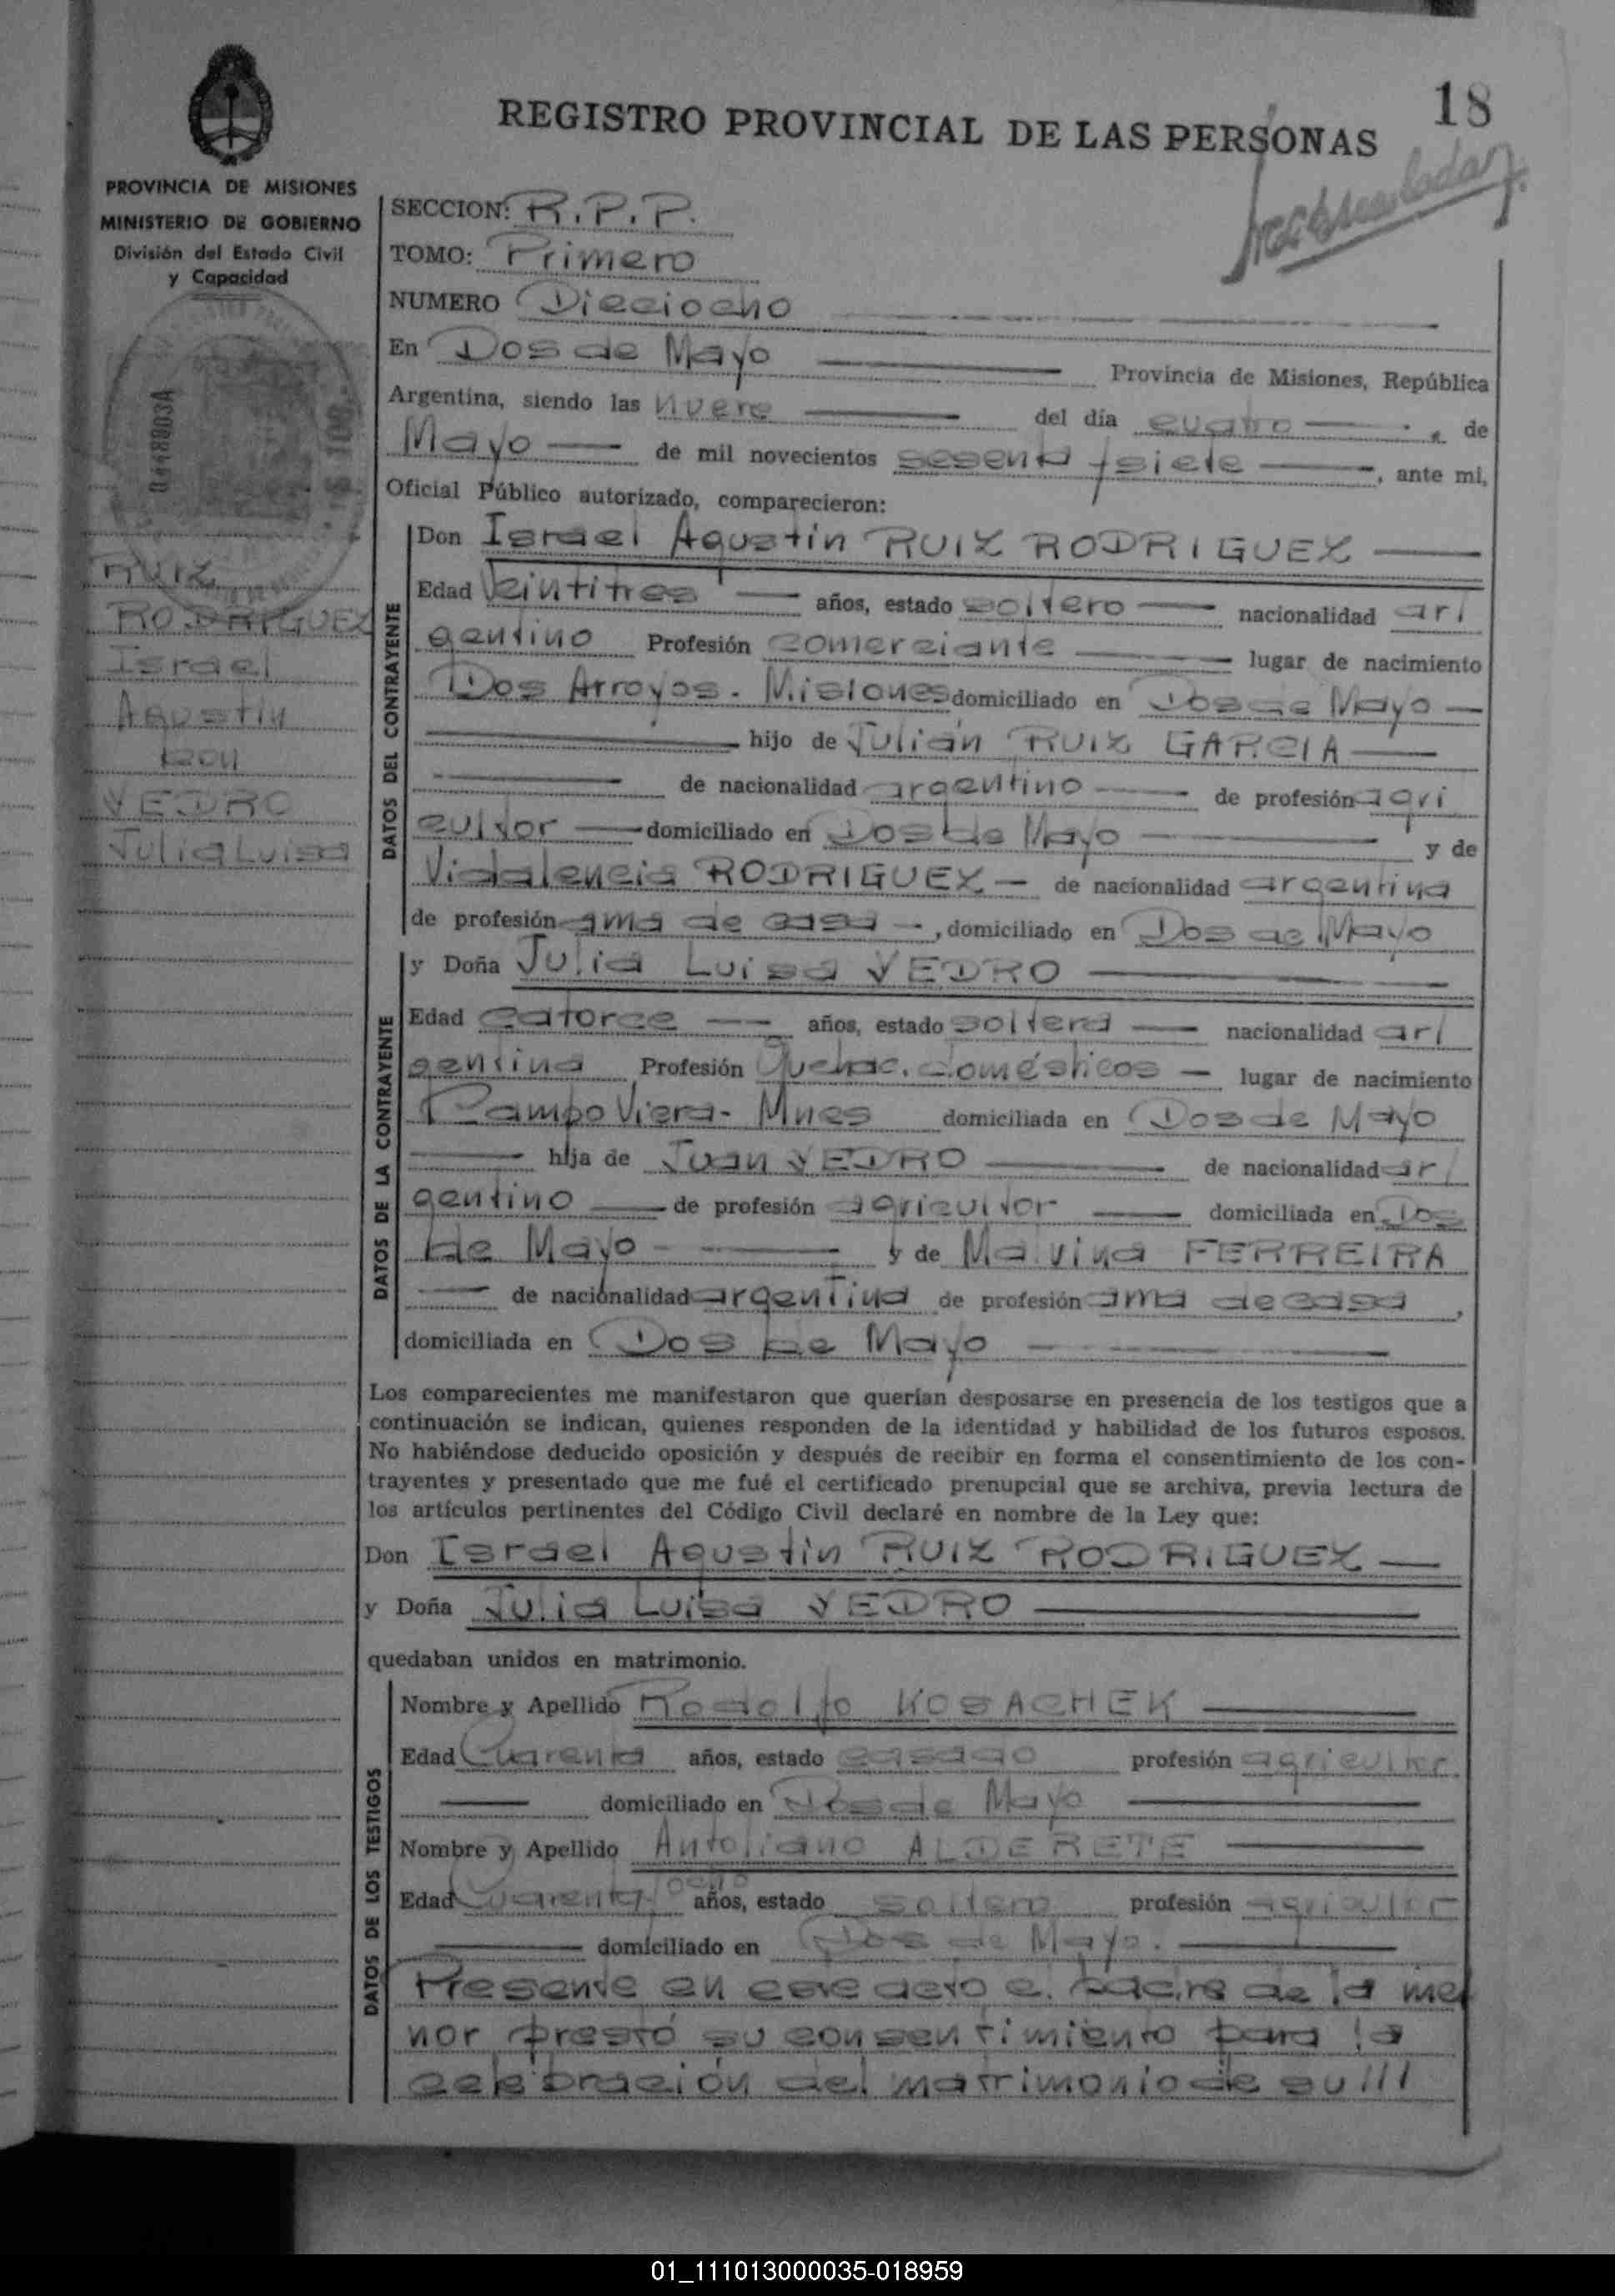 18
REGISTRO PROVINCIAL DE LAS PERSONAS
PROVINCIA DE MISIONES
MINISTERIO DE GOBIERNO
División del Estado Civil
y Capacidad
RUIZ
RODRIGUEZ
Israel
Agustin
con
VEDRO
Julia Luisa
SECCION: R.P.P.
TOMO: Primero
NUMERO Dieciocho
En Dos de Mayo Provincia de Misiones, República
Argentina, siendo las nueve del día cuatro, de
Mayo de mil novecientos sesenta y siete, ante mi,
Oficial Público autorizado, comparecieron:
DATOS DEL CONTRAYENTE
Don Israel Agustin RUIZ RODRIGUEZ
Edad Veintitres años, estado soltero nacionalidad ar/
gentino Profesión comerciante lugar de nacimiento
Dos Arroyos - Misiones domiciliado en Dos de Mayo
hijo de Julián RUIZ GARCIA
de nacionalidad argentino de profesión agri
cultor domiciliado en Dos de Mayo y de
Vidalencia RODRIGUEZ de nacionalidad argentina
de profesión ama de casa, domiciliado en Dos de Mayo
DATOS DE LA CONTRAYENTE
y Doña Julia Luisa VEDRO
Edad catorce años, estado soltera nacionalidad ar/
gentina Profesión Quehac. domésticos lugar de nacimiento
Campo Viera - Mnes domiciliada en Dos de Mayo
hija de Juan VEDRO de nacionalidad ar/
gentino de profesión agricultor domiciliada en Dos
de Mayo y de Malvina FERREIRA
de nacionalidad argentina de profesión ama de casa,
domiciliada en Dos de Mayo
Los comparecientes me manifestaron que querían desposarse en presencia de los testigos que a
continuación se indican, quienes responden de la identidad y habilidad de los futuros esposos.
No habiéndose deducido oposición y después de recibir en forma el consentimiento de los con-
trayentes y presentado que me fué el certificado prenupcial que se archiva, previa lectura de
los artículos pertinentes del Código Civil declaré en nombre de la Ley que:
Don Israel Agustin RUIZ RODRIGUEZ
y Doña Julia Luisa VEDRO
quedaban unidos en matrimonio.
DATOS DE LOS TESTIGOS
Nombre y Apellido Rodolfo KOSACHEK
Edad Cuarenta años, estado casado profesión agricultor
domiciliado en Dos de Mayo
Nombre y Apellido Antoliano ALDERETE
Edad Cuarenta y ocho años, estado soltero profesión agricultor
domiciliado en Dos de Mayo.
Presente en este acto el padre de la me
nor prestó su consentimiento para la
celebración del matrimonio de su ///
01_111013000035-018959